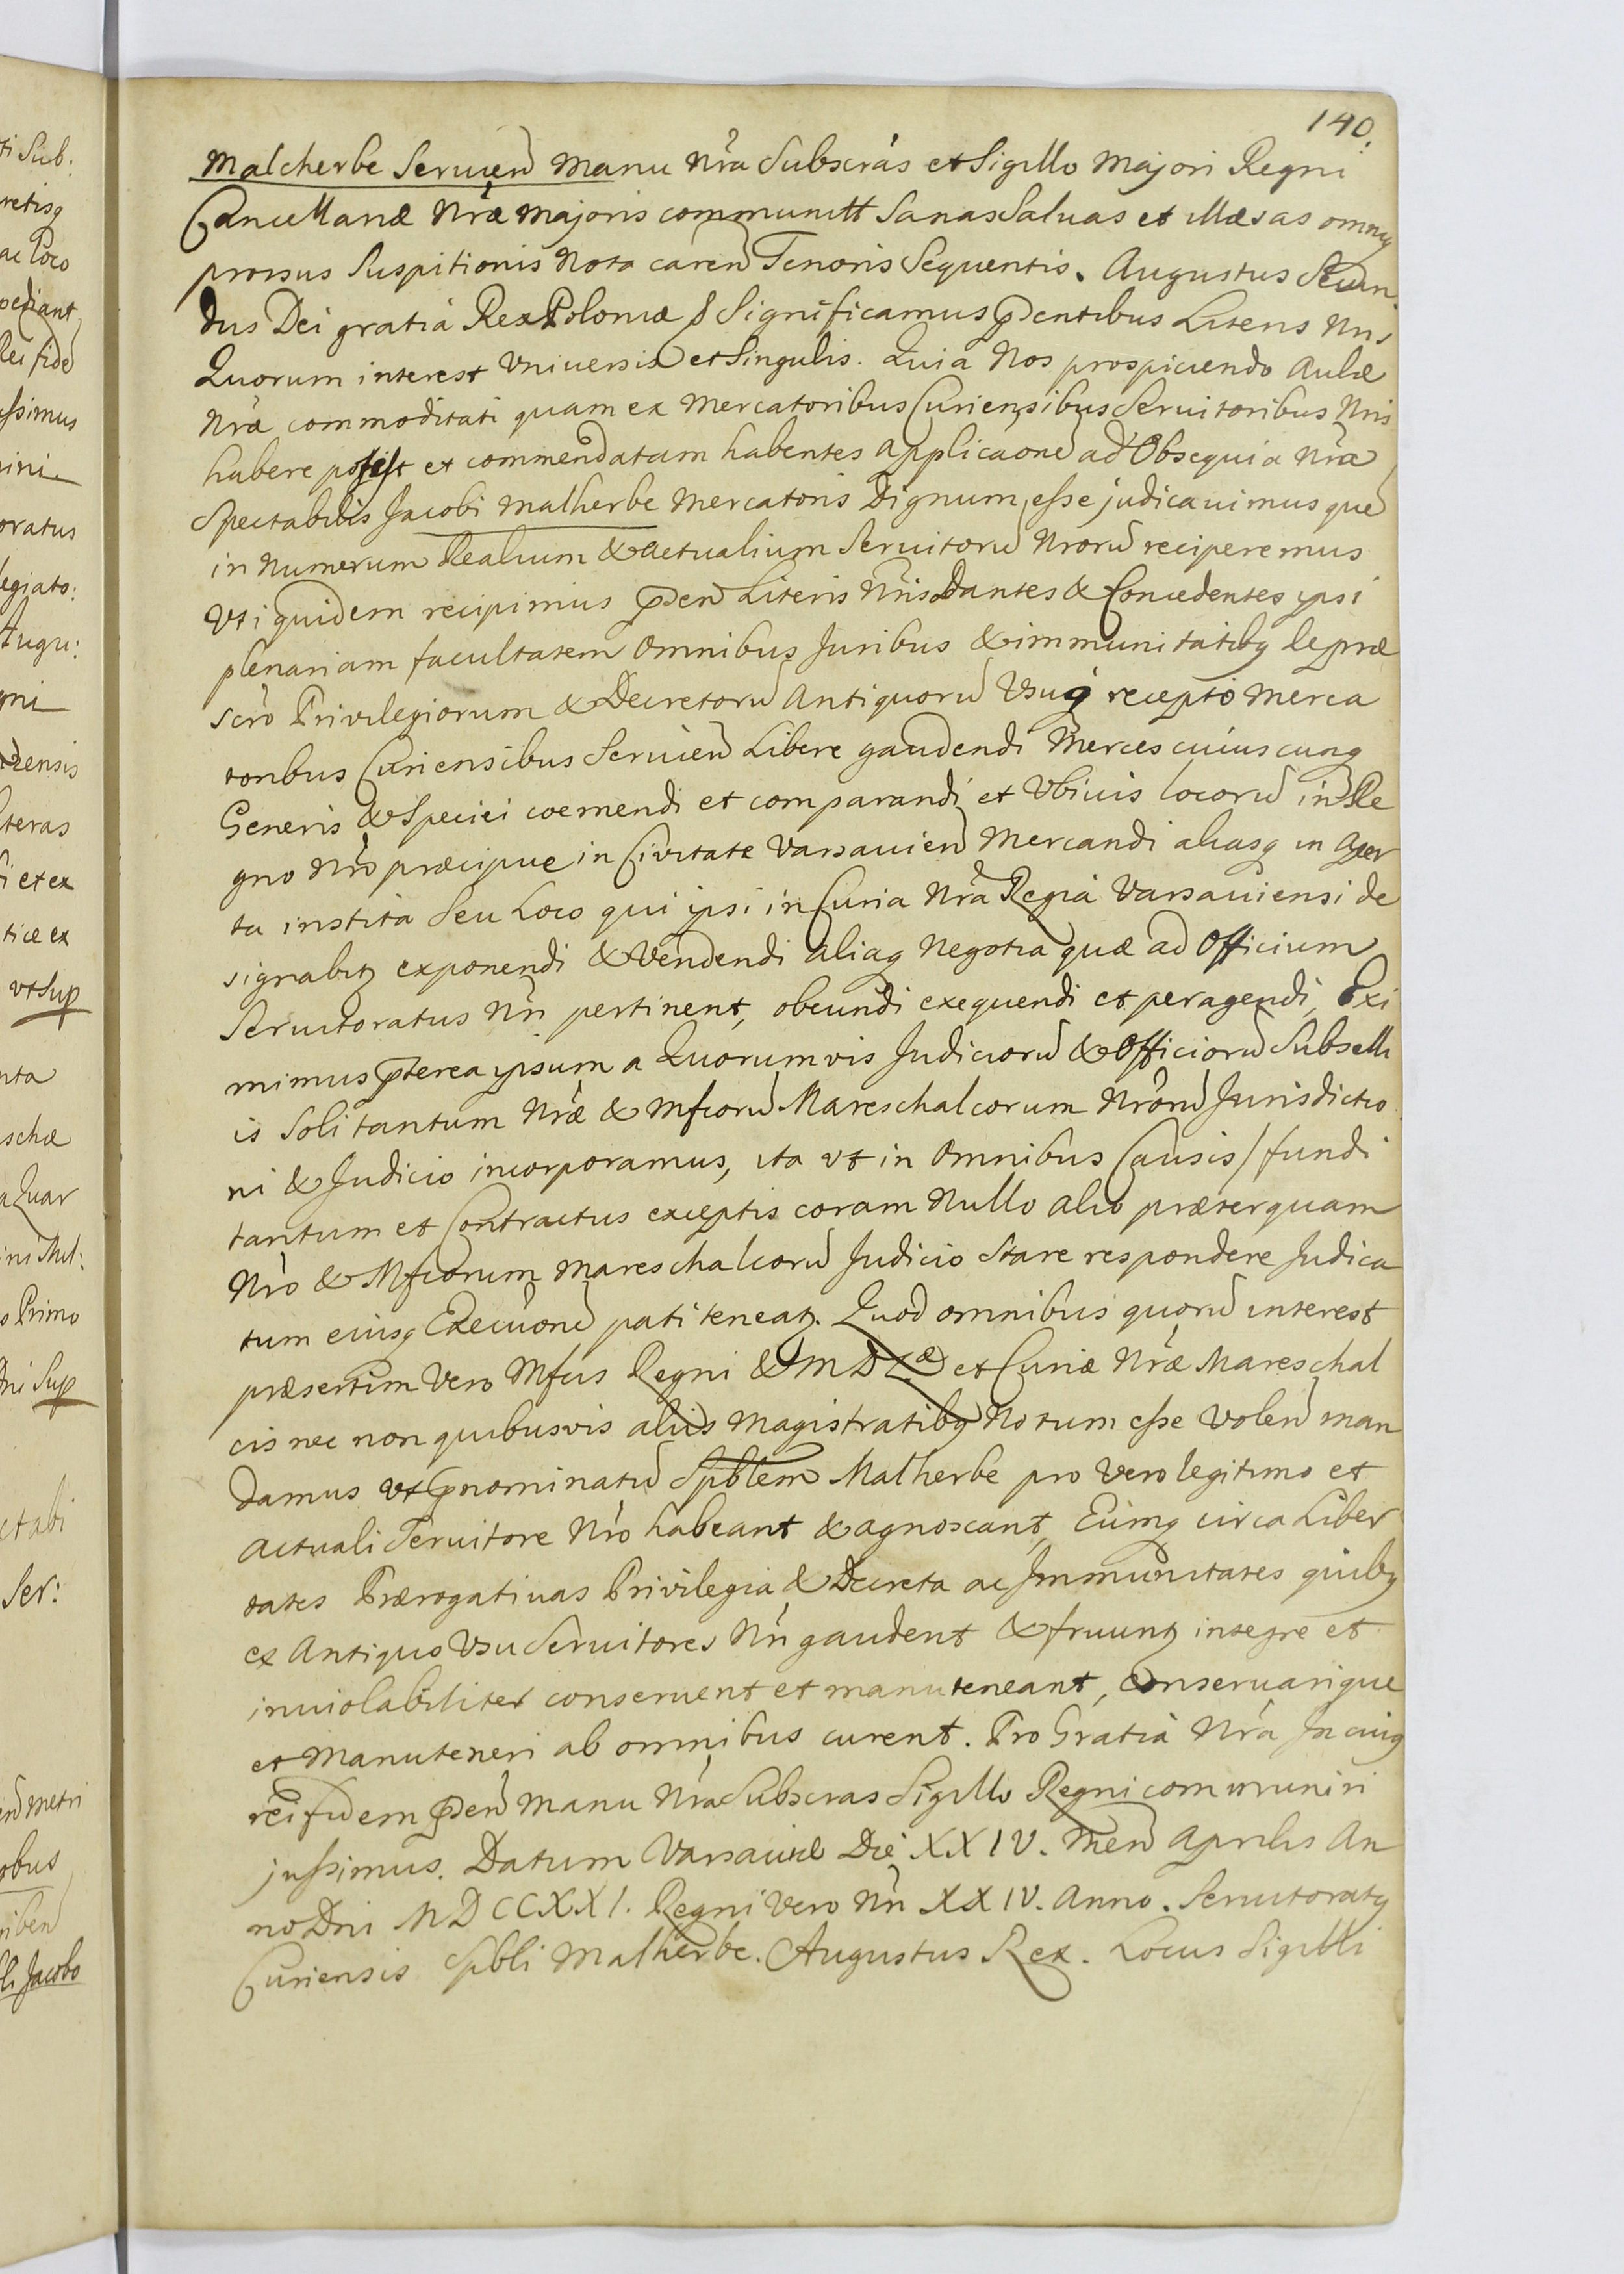 140.
Malcherbe Seruien manu Nra Subscras et Sigillo Majori Regni
Cancellariæ Nræ majoris communitt Sanas Saluas et illæsas omniq
prorsus Suspitionis Nota caren Tenoris Sequentis. Augustus Secun
dus Dei gratia Rex Poloniæ & Significamus pntibus Literis Nris
Quorum interest Vniuersis et Singulis. Quia Nos prospiciendo Aulæ
Nræ commoditati quam ex Mercatoribus Curiensibus Seruitoribus Nris
habere potest et commendatam habentes Applicaone ad Obsequia Nra
Spectabilis Jacobi Malherbe Mercatoris Dignum esse judicauimus que
in Numerum Realium & Actualium Seruitoru Nroru reciperemus
Vti quidem recipimus pnen Literis Nris Dantes & Concedentes ypsi
plenariam facultatem Omnibus Juribus & immunitatibq le præ
scro Privilegiorum & Decretoru Antiquoru Vsuq recepto Merca
toribus Curiensibus Seruien Libere gaudendi Merces cuiuscunq
Generis & Speciei coemendi et comparandi et Vbiuis locoru in Re
gno Nro præcipue in Civitate Varsauien Mercandi aliasq in Aper
ta instita Seu Loco qui ipsi in Curia Nra Regia Varsauiensi de
signabitz exponendi & Vendendi Aliaq Negotia quæ ad Officium
Seruitoratus Nri pertinent, obeundi exequendi et peragendi, Exi
mimus pterea ypsum a Quorumvis Judicioru & Officioru Subselli
is Soli tantum Nræ & Mficoru Mareschalcorum Nroru Jurisdictio
ni & Judicio incorporamus, ita vt in Omnibus Causis / fundi
tantum et Contractus exceptis coram Nullo alio præterquam
Nro & Mficorum Mareschalcoru Judicio Stare respondere Judica
tum eiusq Execuone pati teneatz. Quod omnibus quoru interest
præsertim Vero Mfcis Regni & M D Læ et Curiæ Nræ Mareschal
cis nec non quibusvis aliis Magistratibq Notum esse Volen man
damus vt pnominatu Spblem Malherbe pro Vero legitimo et
Actuali Seruitore Nro habeant & agnoscant, Eumq circa Liber
tates Prærogatiuas Privilegia & Decreta ac Immunitates quibq
ex Antiquo Vsu Seruitores Nri gaudent & fruuntz integre et
inuiolabiliter conseruent et manuteneant, conseruarique
et Manuteneri ab omnibus curent. Pro Gratia Nra In cuiq
rei fidem pnen Manu Nra Subscras Sigillo Regni communiri
jussimus. Datum Varsauiæ Die XXIV. Men Aprilis An
no Dni MDCCXXI. Regni Vero Nri XXIV. Anno. Seruitoratq
Curiensis Spbli Malherbe. Augustus Rex. Locus Sigilli